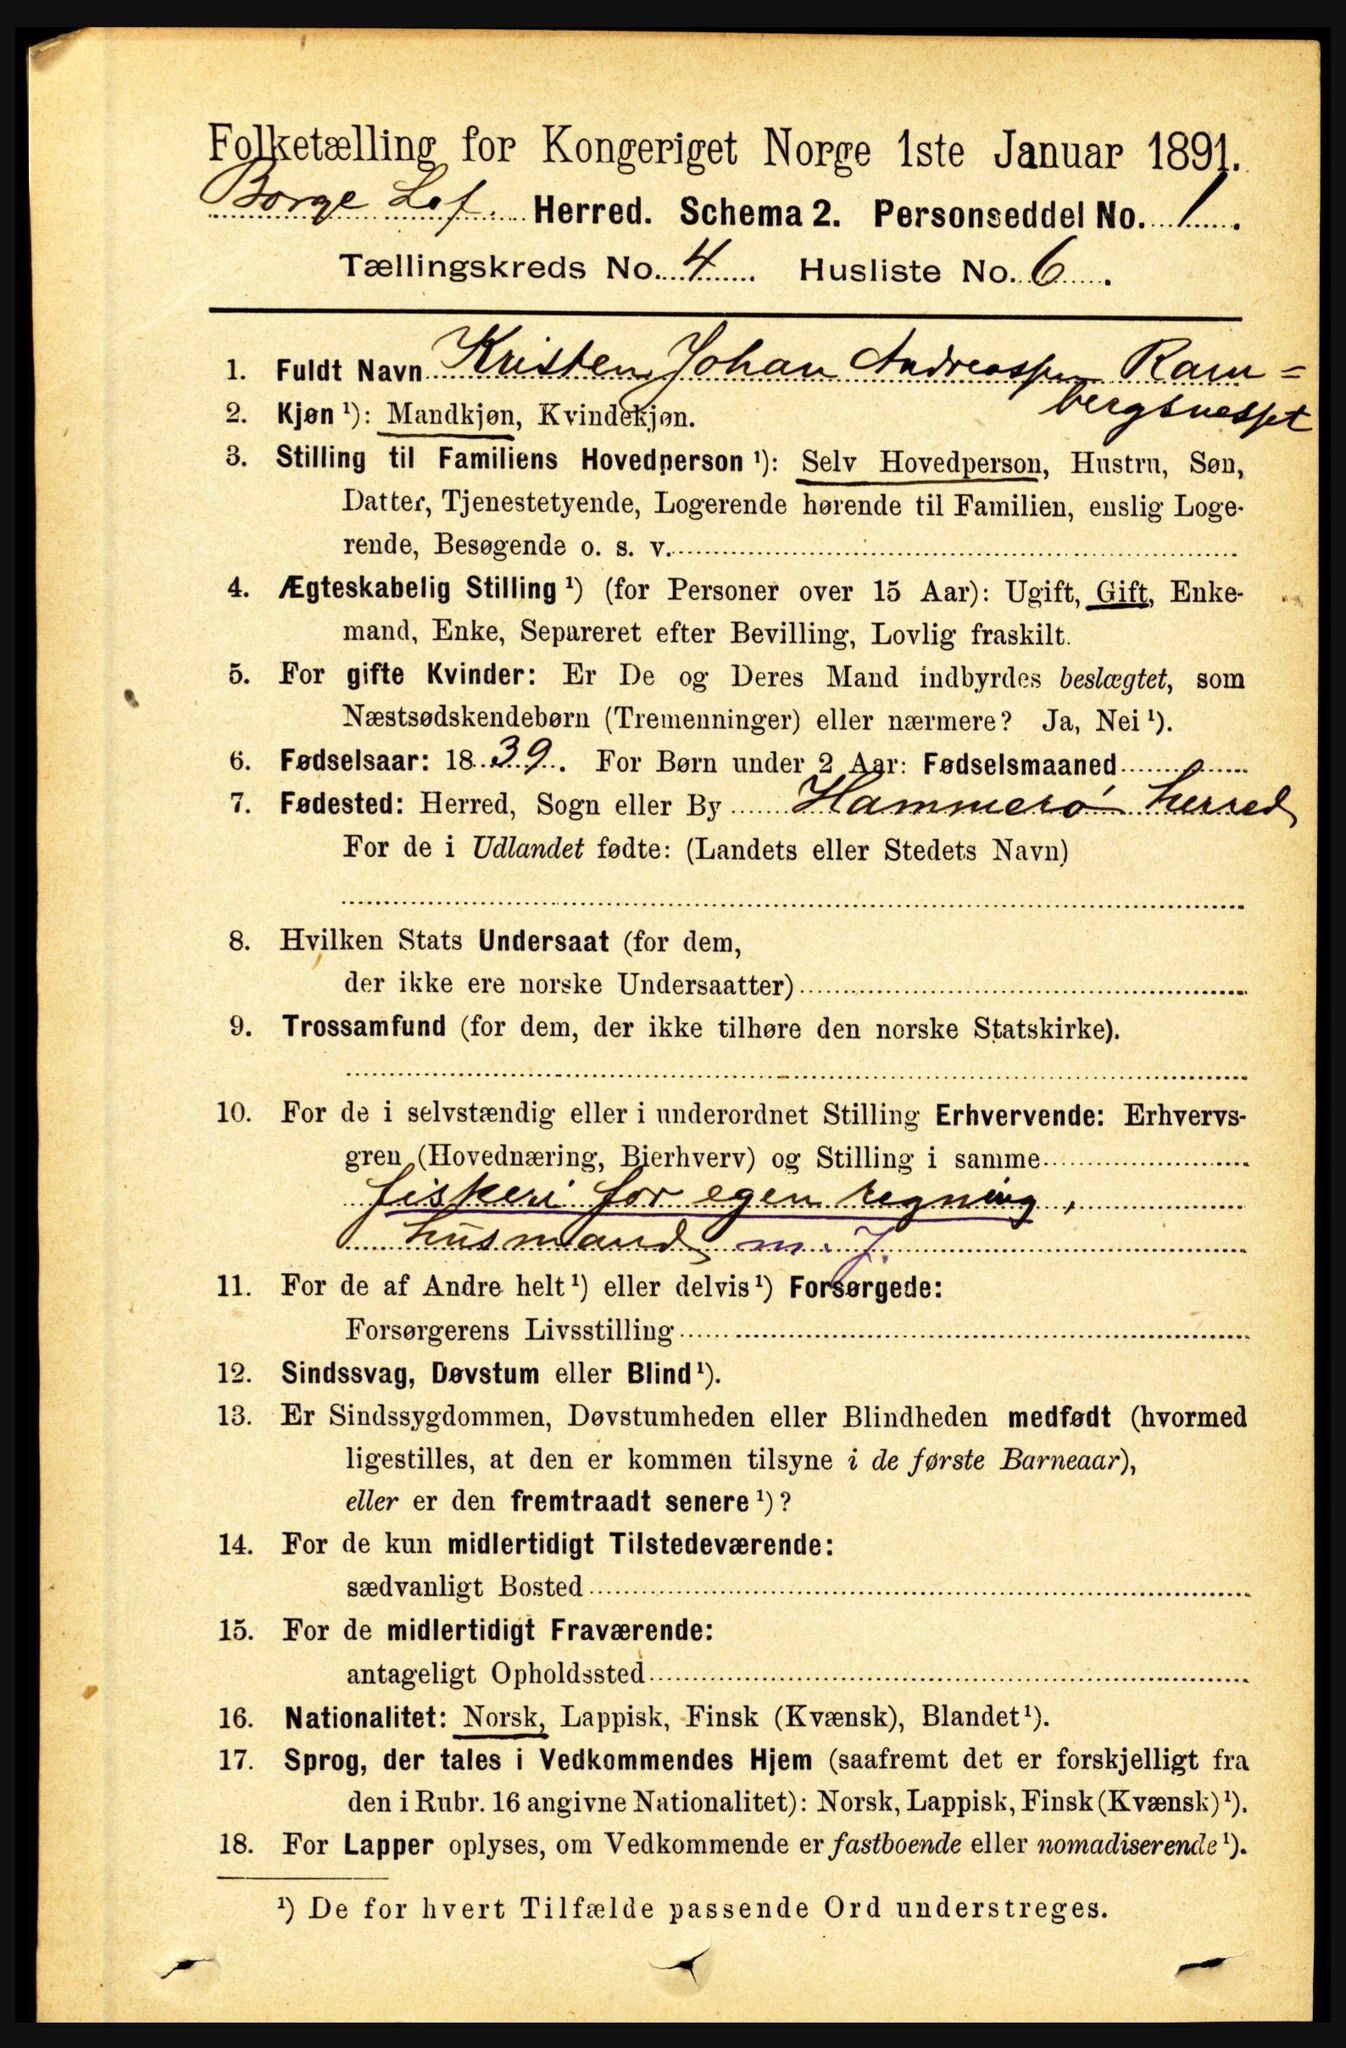 Folketælling for Kongeriget Norge 1ste Januar 1891.
Borge Lof. Herred. Schema 2. Personseddel No. 1.
Tællingskreds No. 4. Husliste No. 6.
1. Fuldt Navn Kristen Johan Andreassen Ram=
bergsnesset
2. Kjøn ¹): Mandkjøn, Kvindekjøn.
3. Stilling til Familiens Hovedperson ¹): Selv Hovedperson, Hustru, Søn,
Datter, Tjenestetyende, Logerende hørende til Familien, enslig Loge-
rende, Besøgende o. s. v.
4. Ægteskabelig Stilling ¹) (for Personer over 15 Aar): Ugift, Gift, Enke-
mand, Enke, Separeret efter Bevilling, Lovlig fraskilt.
5. For gifte Kvinder: Er De og Deres Mand indbyrdes beslægtet, som
Næstsødskendebørn (Tremenninger) eller nærmere? Ja, Nei ¹).
6. Fødselsaar: 1839. For Børn under 2 Aar: Fødselsmaaned
7. Fødested: Herred, Sogn eller By Hammerø herred
For de i Udlandet fødte: (Landets eller Stedets Navn)
8. Hvilken Stats Undersaat (for dem,
der ikke ere norske Undersaatter)
9. Trossamfund (for dem, der ikke tilhøre den norske Statskirke).
10. For de i selvstændig eller i underordnet Stilling Erhvervende: Erhvervs-
gren (Hovednæring, Bierhverv) og Stilling i samme
fiskeri for egen regning,
husmand m. J.
11. For de af Andre helt ¹) eller delvis ¹) Forsørgede:
Forsørgerens Livsstilling
12. Sindssvag, Døvstum eller Blind ¹).
13. Er Sindssygdommen, Døvstumheden eller Blindheden medfødt (hvormed
ligestilles, at den er kommen tilsyne i de første Barneaar),
eller er den fremtraadt senere ¹)?
14. For de kun midlertidigt Tilstedeværende:
sædvanligt Bosted
15. For de midlertidigt Fraværende:
antageligt Opholdssted
16. Nationalitet: Norsk, Lappisk, Finsk (Kvænsk), Blandet ¹).
17. Sprog, der tales i Vedkommendes Hjem (saafremt det er forskjelligt fra
den i Rubr. 16 angivne Nationalitet): Norsk, Lappisk, Finsk (Kvænsk) ¹).
18. For Lapper oplyses, om Vedkommende er fastboende eller nomadiserende ¹).
¹) De for hvert Tilfælde passende Ord understreges.